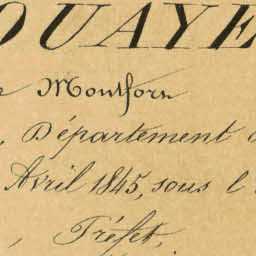 OUAYE
Montfort
, Département
Avril 1845, sous l
, Préfet,